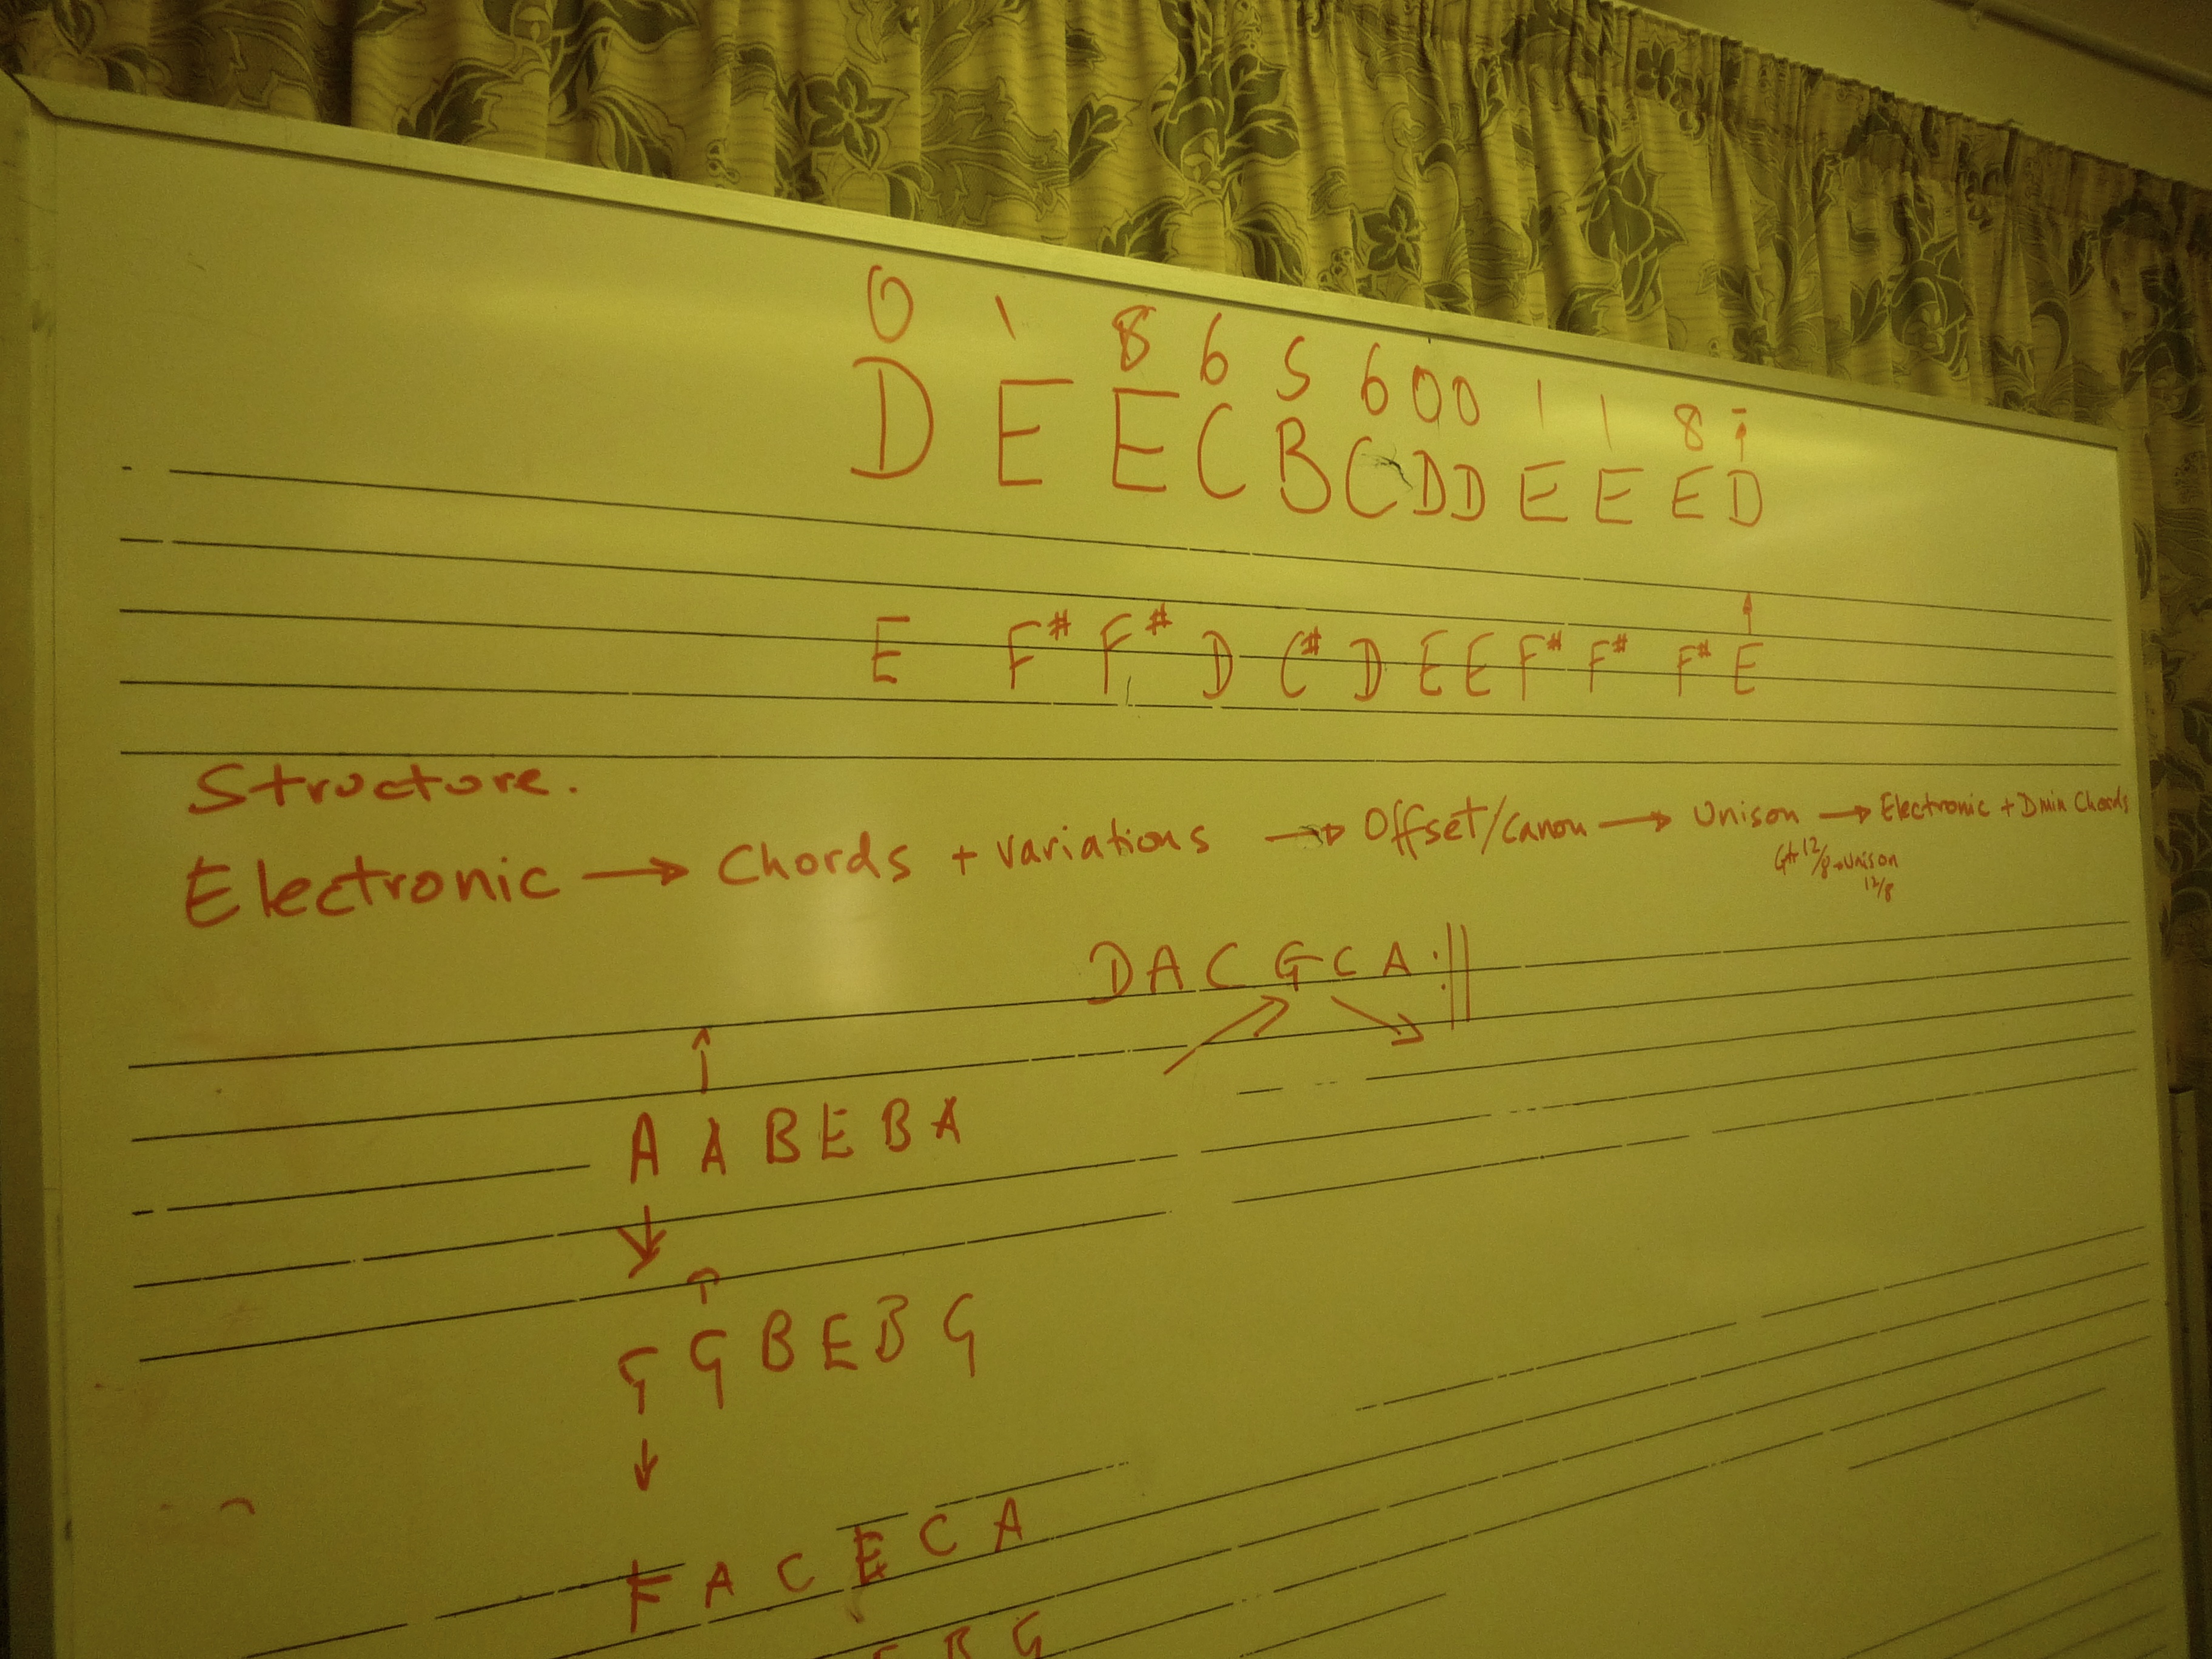 0 1 8 6 5 6 0 0 1 1 8 -
D E E C B C D D E E E D
E F# F# D C# D E E F# F# F# E
Structure.
Electronic → Chords + variations → Offset/Canon → Unison → Electronic + Dmin Chords
Gtr 12/8 → Unison
12/8
D A C G C A :||
A A B E B A
G G B E B G
F A C E C A
B G